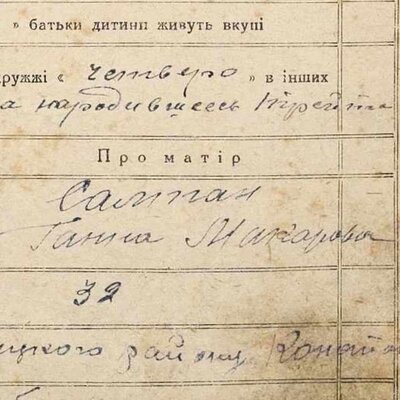 » батьки дитини живуть вкупі
ружжі « четверо » в інших
а народившеесь третім
Про матір
Салтан
Ганна Макарова
32
цкого району